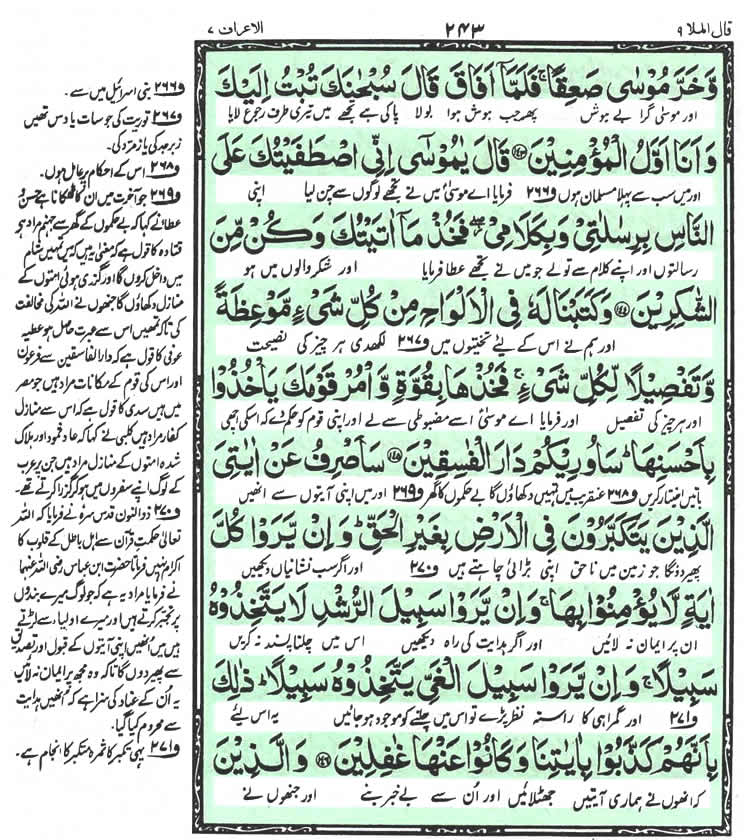 قال الملا ۹
۲۴۳
الاعراف ۷
وَّخَرَّ مُوْسٰى صَعِقًا ۚ فَلَمَّاۤ اَفَاقَ قَالَ سُبْحٰنَكَ تُبْتُ اِلَيْكَ
اور موسیٰ گرا بے ہوش پھر جب ہوش ہوا بولا پاکی ہے تجھے میں تیری طرف رجوع لایا
وَ اَنَا اَوَّلُ الْمُؤْمِنِيْنَ ﴿۱۴۳﴾ قَالَ يٰمُوْسٰۤى اِنِّى اصْطَفَيْتُكَ عَلَى
اور میں سب سے پہلا مسلمان ہوں ف۲۶۶ فرمایا اے موسیٰ میں نے تجھے لوگوں سے چن لیا اپنی
النَّاسِ بِرِسٰلٰتِىْ وَ بِكَلَامِىْ ۖ فَخُذْ مَاۤ اٰتَيْتُكَ وَ كُنْ مِّنَ
رسالتوں اور اپنے کلام سے تو لے جو میں نے تجھے عطا فرمایا اور شکر والوں میں ہو
الشّٰكِرِيْنَ ﴿۱۴۴﴾ وَ كَتَبْنَا لَهٗ فِى الْاَلْوَاحِ مِنْ كُلِّ شَىْءٍ مَّوْعِظَةً
اور ہم نے اس کے لئے تختیوں میں ف۲۶۷ لکھدی ہر چیز کی نصیحت
وَّ تَفْصِيْلًا لِّكُلِّ شَىْءٍ ۚ فَخُذْهَا بِقُوَّةٍ وَّ اْمُرْ قَوْمَكَ يَاْخُذُوْا
اور ہر چیز کی تفصیل اور فرمایا اے موسیٰ اسے مضبوطی سے لے اور اپنی قوم کو حکم دے کہ اسکی اچھی
بِاَحْسَنِهَا ؕ سَاُورِيْكُمْ دَارَ الْفٰسِقِيْنَ ﴿۱۴۵﴾ سَاَصْرِفُ عَنْ اٰيٰتِىَ
باتیں اختیار کریں ف۲۶۸ عنقریب میں تمہیں دکھاؤں گا بے حکموں کا گھر ف۲۶۹ اور میں اپنی آیتوں سے انھیں
الَّذِيْنَ يَتَكَبَّرُوْنَ فِى الْاَرْضِ بِغَيْرِ الْحَقِّ ؕ وَ اِنْ يَّرَوْا كُلَّ
پھیر دونگا جو زمین میں ناحق اپنی بڑائی چاہتے ہیں ف۲۷۰ اور اگر سب نشانیاں دیکھیں
اٰيَةٍ لَّا يُؤْمِنُوْا بِهَا ۚ وَ اِنْ يَّرَوْا سَبِيْلَ الرُّشْدِ لَا يَتَّخِذُوْهُ
ان پر ایمان نہ لائیں اور اگر ہدایت کی راہ دیکھیں اس میں چلنا پسند نہ کریں
سَبِيْلًا ۚ وَ اِنْ يَّرَوْا سَبِيْلَ الْغَىِّ يَتَّخِذُوْهُ سَبِيْلًا ؕ ذٰلِكَ
ف۲۷۱ اور گمراہی کا راستہ نظر پڑے تو اس میں چلنے کو موجود ہو جائیں یہ اس لئے
بِاَنَّهُمْ كَذَّبُوْا بِاٰيٰتِنَا وَ كَانُوْا عَنْهَا غٰفِلِيْنَ ﴿۱۴۶﴾ وَ الَّذِيْنَ
کہ انھوں نے ہماری آیتیں جھٹلائیں اور اُن سے بے خبر بنے اور جنھوں نے
ف۲۶۶ بنی اسرائیل میں سے ۔
ف۲۶۷ توریت کی جو سات یا دس تھیں
زبرجد کی یا زمرد کی ۔
ف۲۶۸ اس کے احکام پر عامل ہوں ۔
ف۲۶۹ جو آخرت میں ان کا ٹھکانا ہے حسن و
عطا نے کہا کہ بے حکموں کے گھر سے جہنم مراد ہے
قتادہ کا قول ہے کہ معنٰی یہ ہیں کہ میں تمہیں شام
میں داخل کروں گا اور گذری ہوئی امتوں کے
منازل دکھاؤں گا جنھوں نے اللہ کی مخالفت
کی تاکہ تمھیں اس سے عبرت حاصل ہو عطیہ
عوفی کا قول ہے کہ دار الفاسقین سے فرعون
اور اس کی قوم کے مکانات مراد ہیں جو مصر
میں ہیں سدی کا قول ہے کہ اس سے منازل
کفار مراد ہیں کلبی نے کہا کہ عاد و ثمود اور ہلاک
شدہ امتوں کے منازل مراد ہیں جن پر عرب
کے لوگ اپنے سفروں میں ہو کر گزرا کرتے تھے ۔
ف۲۷۰ ذوالنون قدس سرہٗ نے فرمایا کہ اللہ
تعالیٰ حکمت قرآن سے اہل باطل کے قلوب کا
اکرام نہیں فرماتا حضرت ابن عباس رضی اللہ عنہما
نے فرمایا مراد یہ ہے کہ جو لوگ میرے بندوں
پر تجبر کرتے ہیں اور میرے اولیاء سے لڑتے
ہیں میں انھیں اپنی آیتوں کے قبول اور تصدیق
سے پھیر دوں گا تاکہ وہ مجھ پر ایمان نہ لائیں
یہ اُن کے عناد کی سزا ہے کہ انھیں ہدایت
سے محروم کیا گیا ۔
ف۲۷۱ یہی تکبر کا ثمرہ متکبر کا انجام ہے ۔